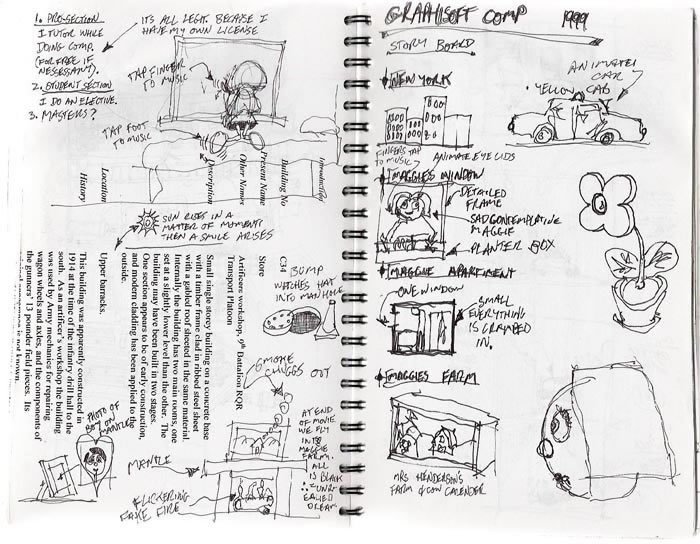 1. PRO-SECTION
I TUTOR WHILE
DOING COMP.
(FOR FREE IF
NESESSARY).
2. STUDENT SECTION
I DO AN ELECTIVE.
3. MASTERS?
IT'S ALL LEGIT. BECAUSE I
HAVE MY OWN LICENSE
TAP FINGER
TO MUSIC
TAP FOOT
TO MUSIC
Introduction
Building No
Present Name
Other Names
Description
Location
History
SUN RISES IN A
MATTER OF MOMENTS
THEN A SMILE ARISES
C34
Store
Artificers workshop, 9th Battalion RQR
Transport Platoon
Small single storey building on a concrete base
with a timber frame clad in ribbed steel sheet
with a gabled roof sheeted in the same material.
Internally the building has two main rooms, one
set at a slightly lower level than the other. The
building may have been built in two stages.
One section appears to be of early construction,
and modern cladding has been applied to the
outside.
Upper barracks.
This building was apparently constructed in
1914 at the time of the infantry drill hall to the
south. As an artificer's workshop the building
was used by Army mechanics for repairing
wagon wheels and axles, and the components of
the gunners' 13 pounder field pieces. Its
BUMP
WATCHES HAT
INTO MAN HOLE
SMOKE
CHUGGS OUT
AT END
OF MOVIE
WE FLY
INTO
MAGGIE
FARM.
ALL
IS BLACK
DREAM
PHOTO OF
BOY ON
MANTLE
MANTLE
FLICKERING
FAKE FIRE
GRAPHISOFT COMP 1999
STORY BOARD
NEW YORK
ANIMATED
CAR
YELLOW CAB
FINGERS TAP
TO MUSIC
ANIMATE EYE LIDS
MAGGIES WINDOW
DETAILED
FRAME
SAD CONTEMPLATIVE
MAGGIE
PLANTER BOX
MAGGIE APARTMENT
ONE WINDOW
SMALL
EVERYTHING
IS CRAMPED
IN.
MAGGIES FARM
MRS HENDERSON'S
FARM & COW CALENDER